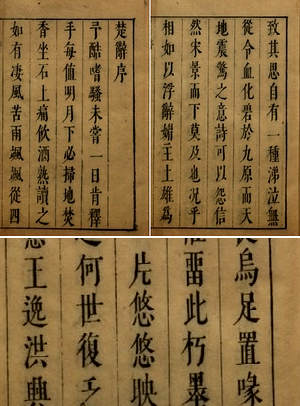 楚辭序
予酷嗜騷未嘗一日肯釋
手每值明月下必掃地焚
香坐石上痛飲酒熟讀之
如有淒風苦雨颯颯從四
致其思自有一種涕泣無
從令血化碧於九原而天
地震驚之意詩可以怨信
然宋景而下莫及也况乎
相如以浮辭媚雄爲
烏足置喙
留此朽墨
片悠悠映
何世復
王逸洪興